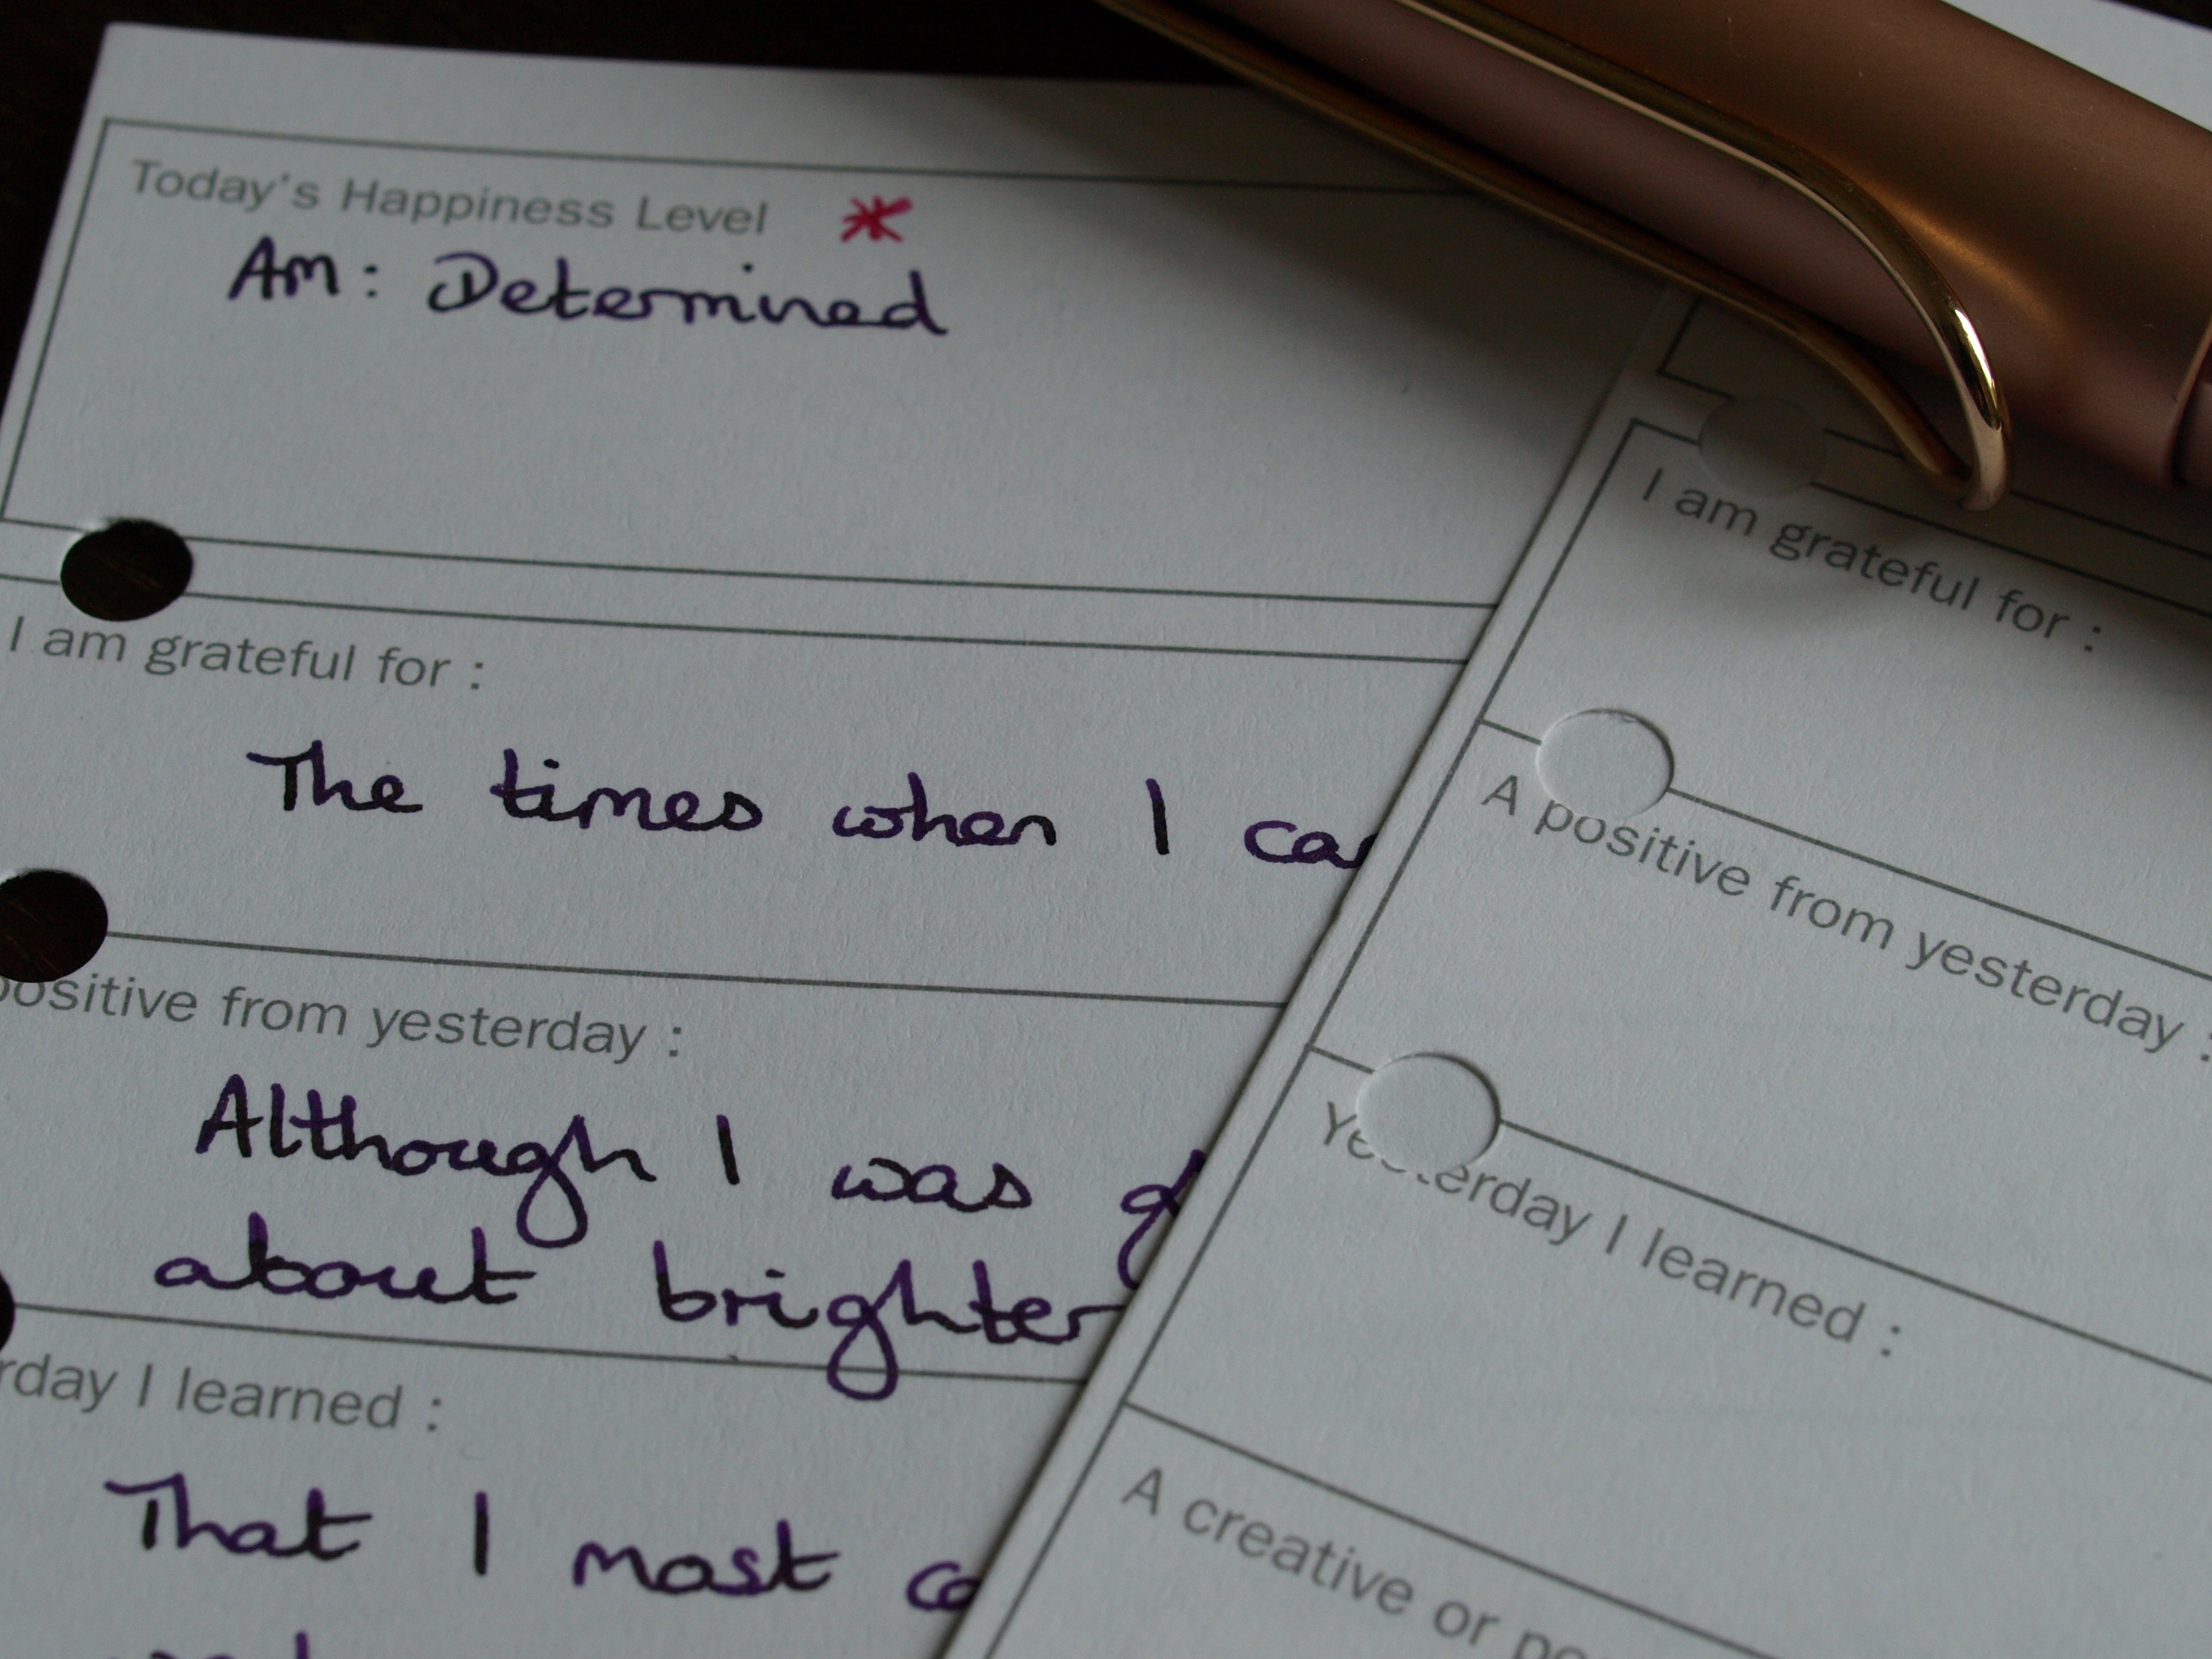 Today's Happiness Level *
Am: Determined
I am grateful for :
The times when I
positive from yesterday :
Although I was
about brighter
I learned :
That I most
I am grateful for :
A positive from yesterday :
Yesterday I learned :
A creative or